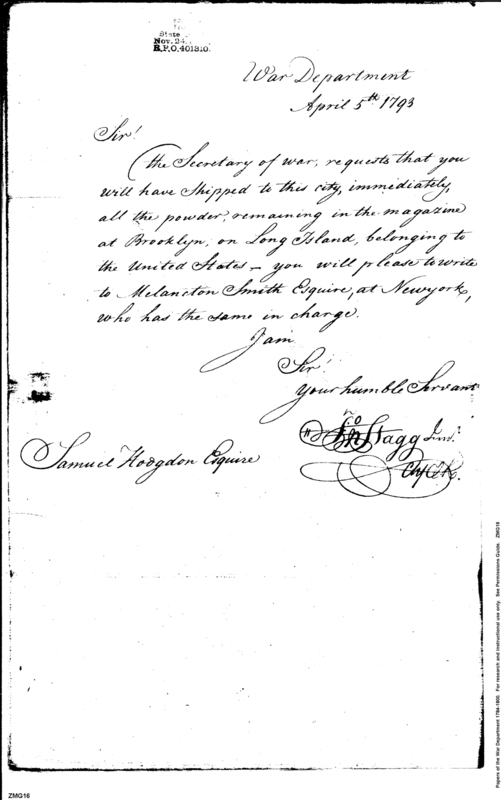 State
Nov. 24,
R.P.O. 401310.
War Department
April 5th 1793
Sir!
the Secretary of war, requests that you
will have Shipped to this city, immediately,
all the powder, remaining in the magazine
at Brooklyn, on Long Island, belonging to
the United States — you will please to write
to Melancton Smith Esquire, at Newyork,
who has the same in charge.
I am
Sir!
Your humble Servant
Jno Stagg Junr.
Chf Clk.
Samuel Hodgdon Esquire
Papers of the War Department 1784-1800. For research and instructional use only. See Permissions Guide. ZMG16
ZMG16